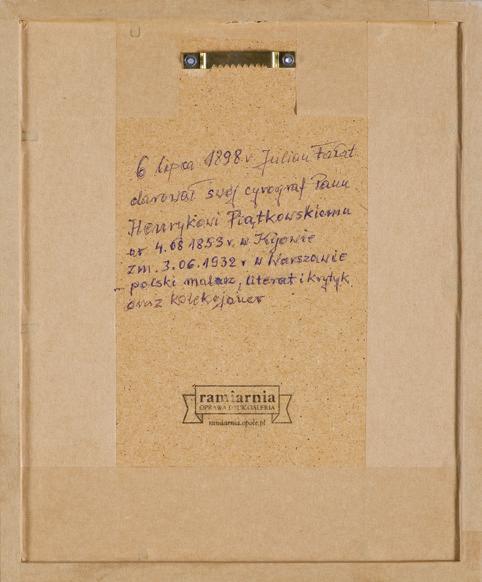 6 lipca 1898 r. Julian Fałat
darował swój cyrograf Panu
Henrykowi Piątkowskiemu
ur 4.08 1853 r. w Kijowie
zm. 3.06.1932 r w Warszawie
- polski malarz, literat i krytyk
oraz kolekcjoner
ramiarnia
OPRAWA DZIEŁ GALERIA
ramiarnia.opole.pl